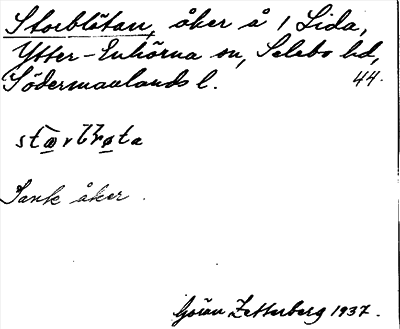 Storblötan, åker å 1 Lida,
Ytter-Enhörna sn, Selebo hd,
Södermanlands l. 44.
Sank åker.
Göran Zetterberg 1937.